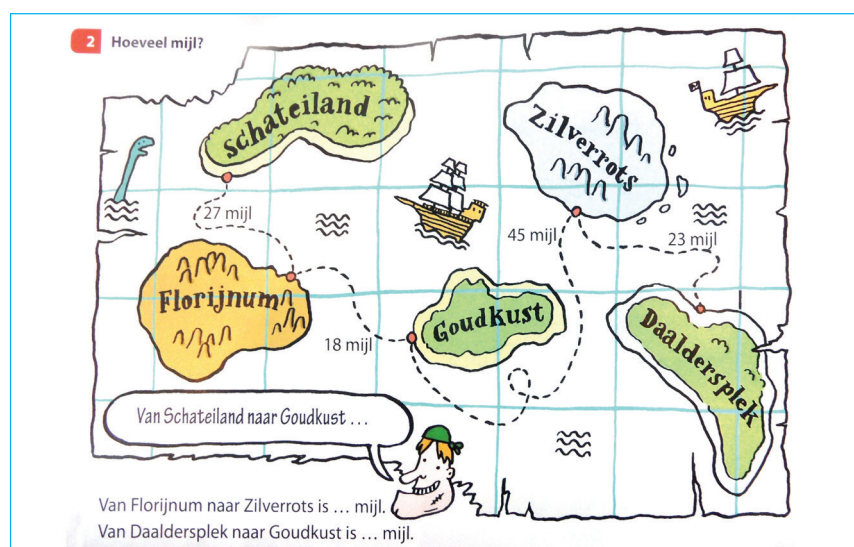 2 Hoeveel mijl?
Schateiland
Zilverrots
27 mijl
45 mijl
23 mijl
Florijnum
Goudkust
Daaldersplek
18 mijl
Van Schateiland naar Goudkust ...
Van Florijnum naar Zilverrots is ... mijl.
Van Daaldersplek naar Goudkust is ... mijl.